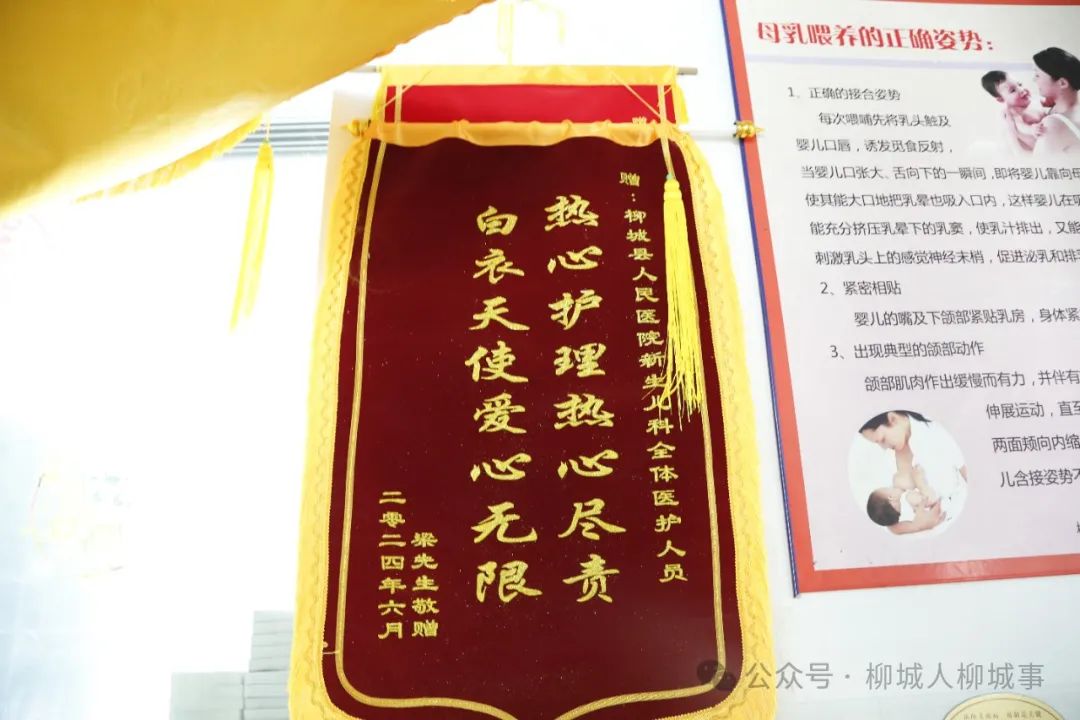 赠：柳城县人民医院新生儿科全体医护人员
热心护理热心尽责
白衣天使爱心无限
梁先生敬赠
二零二四年六月
母乳喂养的正确姿势：
1、正确的接合姿势
每次喂哺先将乳头触及
婴儿口唇，诱发觅食反射，
当婴儿口张大、舌向下的一瞬间，即将婴儿靠向母
使其能大口地把乳晕也吸入口内，这样婴儿在吸
能充分挤压乳晕下的乳窦，使乳汁排出，又能
刺激乳头上的感觉神经末梢，促进泌乳和排乳
2、紧密相贴
婴儿的嘴及下颌部紧贴乳房，身体紧
3、出现典型的颌部动作
颌部肌肉作出缓慢而有力，并伴有
伸展运动，直至
两面颊向内缩
儿含接姿势不
公众号·柳城人柳城事